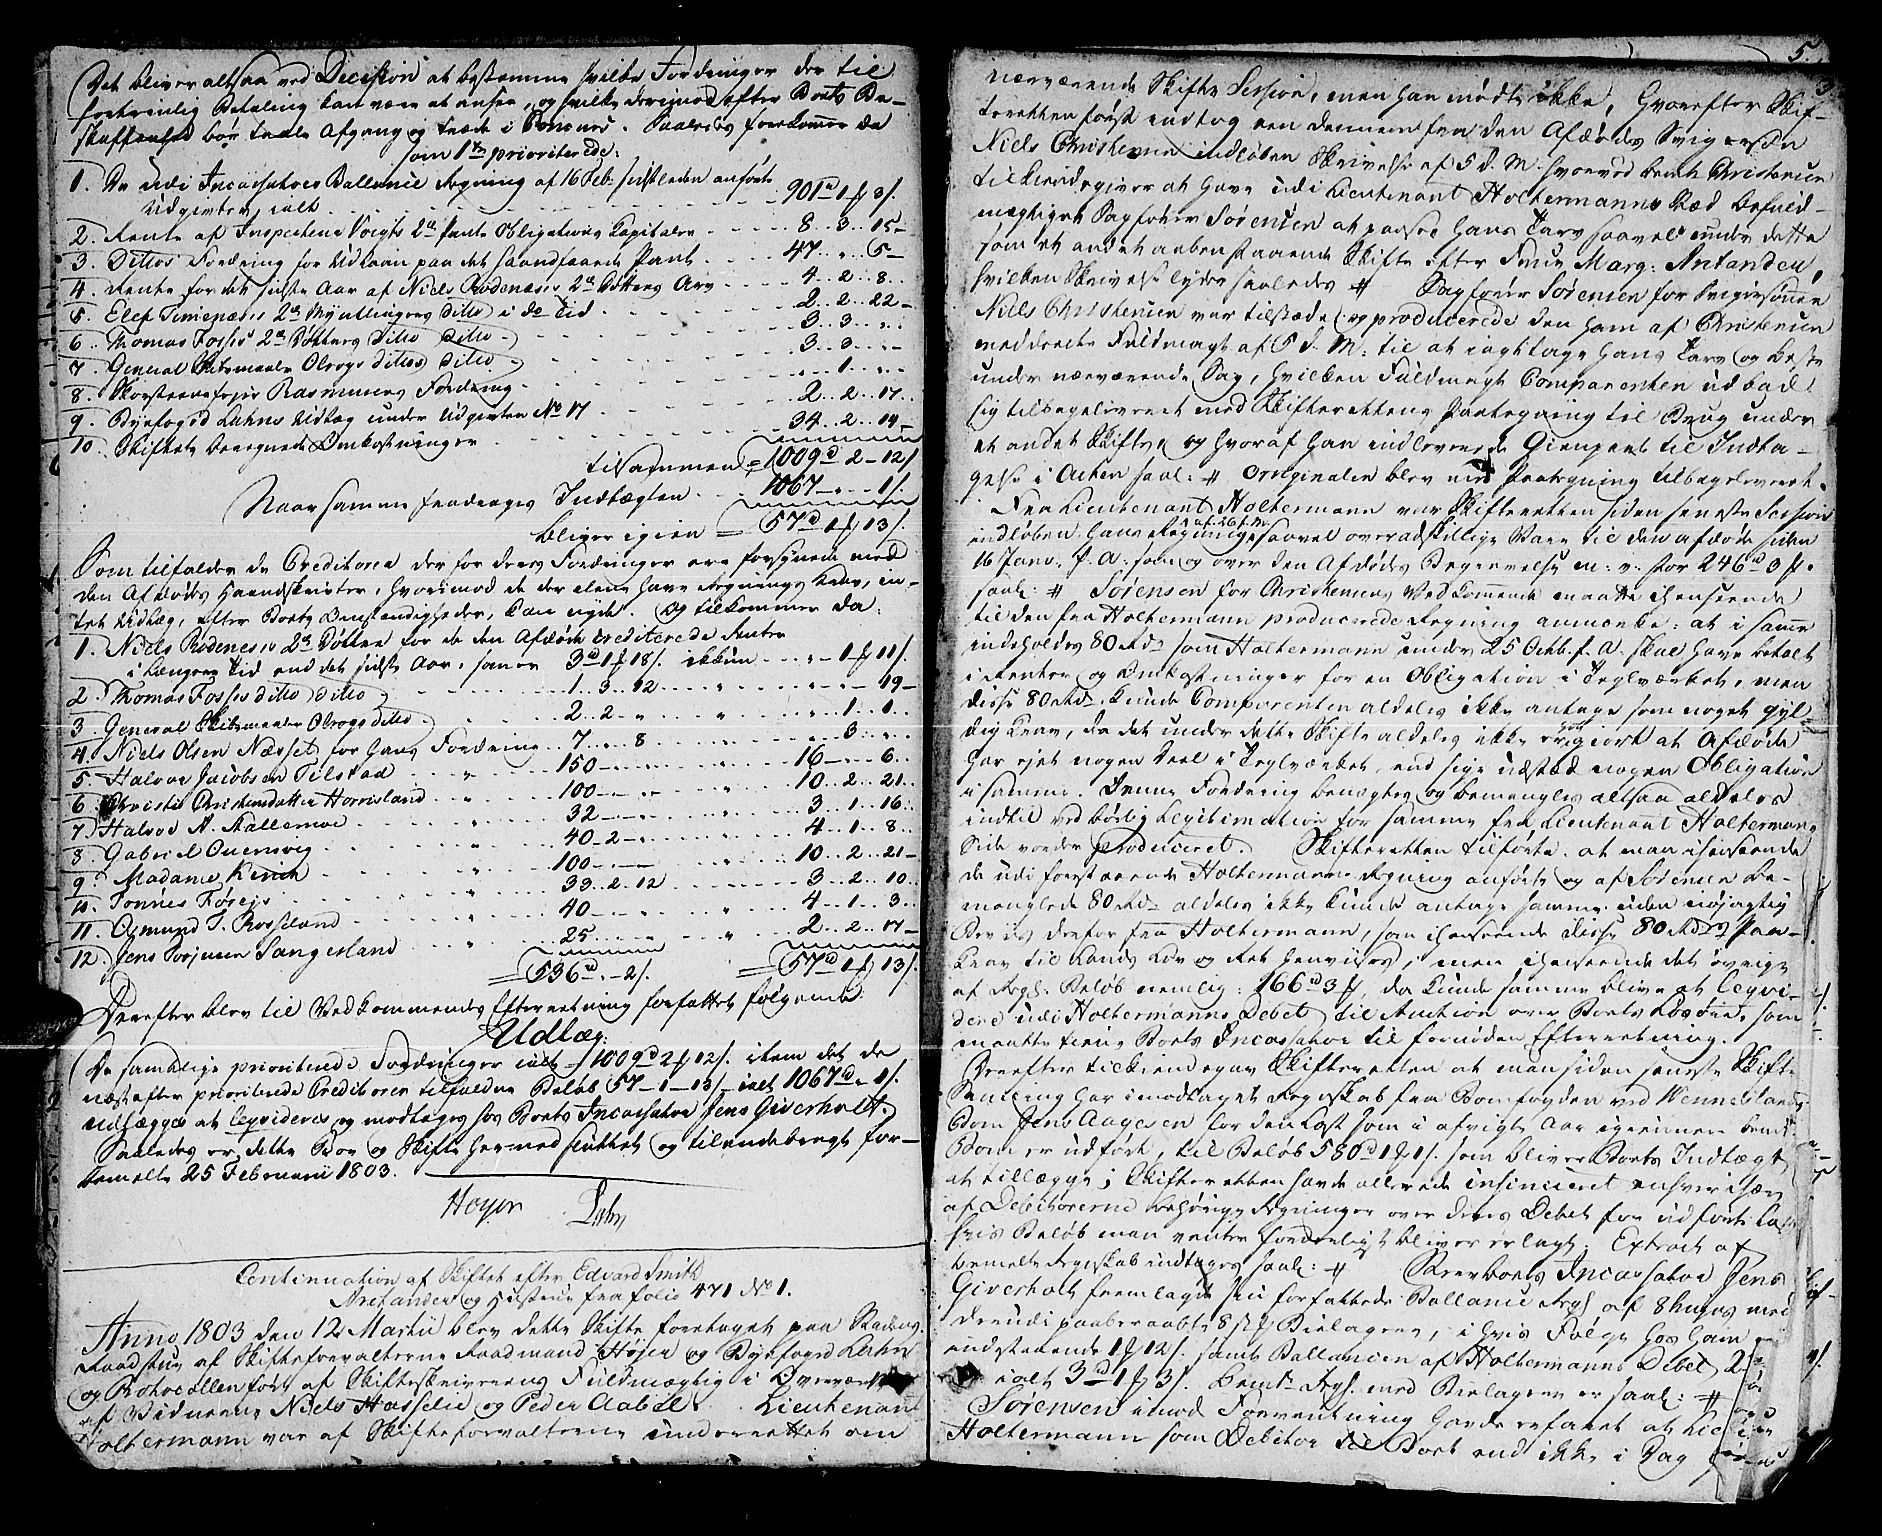 Det bliver altsaa ved Decision at bestemme hvilke Fordringer der til
fortrinlig Betaling kan være at ansee, og hvilke derimod efter Boets Be-
skaffenhed bør taale Afgang og træde i Concurs. Saaledes forekommer da
som 1ste prioriterede:
1. De udi Incassators Ballance Regning af 16 Feb: sidstleden anførte
Udgivter, ialt 901d 1 f 3 s.
2. Rente af Inspecteur Voigts 2den Pante Obligations Capitaler 8 . 3 . 15
3. Dittos Fordring for Udlaan paa det haandfaaede Pant 47 . " . 5
4. Rente for det sidste Aar af Niels Rødenæsis 2de Døttres Arv 4 . 2 . 8
5. Elef 2de Myndlingers ditto i do Tid 2 . 2 . 22
6. Thomas Fosses 2de Døttres Ditto Ditto 3 . 3 . "
7. General Krigsmaaler Olrogs dittos ditto 3 . 3 . "
8. Skorsteensfejer Rasmusens Fordring " . 1 . "
9. Byefoged Lahns Udlæg under Udgivten No 17 2 . 2 . 17
10. Skiftets beregnede Omkostninger 34 . 2 . 14
tilsammen = 1009d 2 - 12 s.
Naar samme fradrages Indtægten 1067 - " - 1 s.
bliver igien = 57d 1 f 13 s.
Som tilfalder de Creditorer der for deres Fordringer ere forsynede med
den Afdødes Haandskrivter, hvorimod de der alene have Regnings Krav, in-
tet Udlæg, efter Boets Omstændigheder, kan nyde. Og tilkommer da:
1. Niels Rødenæsis 2de Døttre for de den Afdøde crediterede Renter
i længere Tid end det sidste Aar, som er 3d 1 f 18 s. ikkun " - 1 f 11 s.
2. Thomas Fosses ditto ditto 1 . 3 . 12 " . " . 19
3. General Olrogs ditto 2 . 2 . " " . 1 . 1
4. Niels Olsen Næsset for hans Fordring 7 . " . 8 " . 3 . "
5. Halvor Jacobsen Tilstad 150 16 - " - 6
6. Christi Christensdatter Horrisland 100 10 . 2 . 21
7. Halvor A. Mallemoe 32 3 . 1 . 16
8. Gabriel Ouensvig 40 - 2 4 . 1 . 8
9. Madame Kirch 100 10 . 2 . 21
10. Tønnes Førejs 33 . 2 . 12 3 . 2 . 10
11. Osmund T. Rosseland 40 4 . 1 . 3
12. Jens Torjusen Sangesland 25 2 . 2 . 17
= 536d " - 2 s. = 57d 1 f 13 s.
Derefter blev til Vedkommendes Efterretning forfattet følgende
Udlæg:
De samtlige prioriterede Fordringer ialt 1009d 2 f 12 s. item det de
næstefter prioriterede Creditorer tilfaldne Beløb 57 - 1 - 13 - ialt 1067d " 1 s.
udlægges at leqvideres og modtages hos Boets Incassator Jens Giverholt.
Saaledes er dette Boe og Skifte hermed sluttet og tilendebragt for-
remelte 25 Februarii 1803.
Høyer Lahn
Continuation af Skiftet efter Edvard Smith
Aretander og Hustrue fra folio 471 No 1.
Anno 1803 den 12 Martii blev dette Skifte foretaget paa Stadens
Raadstue af Skifteforvalterne Raadmand Høyer og Byefoged Lahn
og Protocollen ført af Skifteskriverens Fuldmægtig i Overvær
af Vidnerne Niels Hasselie og Peder Aabel. Lieutenant
Holtermann var af Skifteforvalterne underrettet om
5.
nærværende Skifte Session, men han mødte ikke, hvorefter Skif-
teretten først indtog een dennem fra den Afdødes Svigersøn
Niels Christensen indløben Skrivelse af 5 d. M. hvorved bemte Christensen
tilkiendegiver at have udi Lieutenant Holtermanns Sted befuld-
mægtiget Sagfører Sørensen at passe hans Tarv saavel under dette
som et andet aabenstaaende Skifte efter Frue Marg: Aretander,
hvilken Skrivelse lyder saaledes # Sagfører Sørensen for Svigersønnen
Niels Christensen var tilstæde og producerede den ham af Christensen
meddeelte Fuldmagt af 5 d. M: til at iagttage hans Tarv og Beste
under nærværende Sag, hvilken Fuldmagt Comparenten udbad
sig tilbageleveret med Skifterettens Paategning til Brug under
et andet Skifte, og hvoraf han indleverede Gienpart til Indta-
gelse i Acten saal: # Originalen blev med Paategning tilbageleveret.
Fra Lieutenant Holtermann var Skifteretten siden seneste Session
indløben hans Regning saavel over adskillige Vare til den afdøde siden
16 Janv. f. A. som og over den Afdødes Begravelse m: v: for 246d 3 f.
saal: # Sørensen for Christensens Vedkommende maatte i henseende
til den fra Holtermann producerede Regning anmærke: at i samme
indeholdes 80 Rd som Holtermann under 25 Octb. f. A. skal have betalt
i Renter og Omkostninger for en Obligation i Teglværket, men
disse 80 Rd kunde Comparenten aldeles ikke antage som noget gyl-
dig Krav, da det under dette Skifte aldeles ikke er giort at Afdøde
har ejet nogen Deel i Teglværket, end sige udstæd nogen Obligation
i samme. Denne Fordring benegtes og bemængles altsaa aldeles
indtil ved børlig Legitimation for samme fra Lieutenant Holtermans
Side vorder produceret. Skifteretten tilførte, at man i henseende
de udi forestaaende Holtermanns Regning anførte og af Sørensen be-
mænglede 80 Rd aldeles ikke kunde antage samme uden nøjagtig
Beviis derfor fra Holtermann, som i henseende disse 80 Rds Paa-
krav til Lands Lov og Ret henvises, men i henseende det øvrige
af Regs. Beløb nemlig: 166d 3 f, da kunde samme blive at leqvi-
dere udi Holtermanns Debet til Auction over Boets Løsøre, som
maatte tiene Boets Incassator til fornøden Efterretning.
Derefter tilkiendegav Skifteretten at man siden seneste Skifte
Samling har imodtaget Regnskab fra Bomfogden ved Wennesland
Bom Jens Aagesen for den Last som i afvigte Aar igiennem bemte
Bom er udført, til Beløb 580d 1 f 1 s. som bliver Boets Indtægt
at tillægge; Skifteretten havde allerede insinueret enhver især
af Debitorerne behørige Regninger over deres Debet for udførte Last
hvis Beløb man venter forderligst bliver erlagt. Extract af
bemelte Regnskab indtages saal: # Herv Boets Incassator Jens
Giverholt fremlagde sin forfattede Ballance Regs af 8 hujus med
derudi paaberaabte 8 Bielagere, i hvis Følge hos ham er
indestaaende 1 f 12 s. samt Ballancen af Holtermanns Debet 2
ialt 3d 1 f 3 s. bemte Regs. med Bielagere er saal: #
Sørensen imod Forventning havde erfaret at Lieute
Holtermann som Debitor til Boet end ikke i Dag